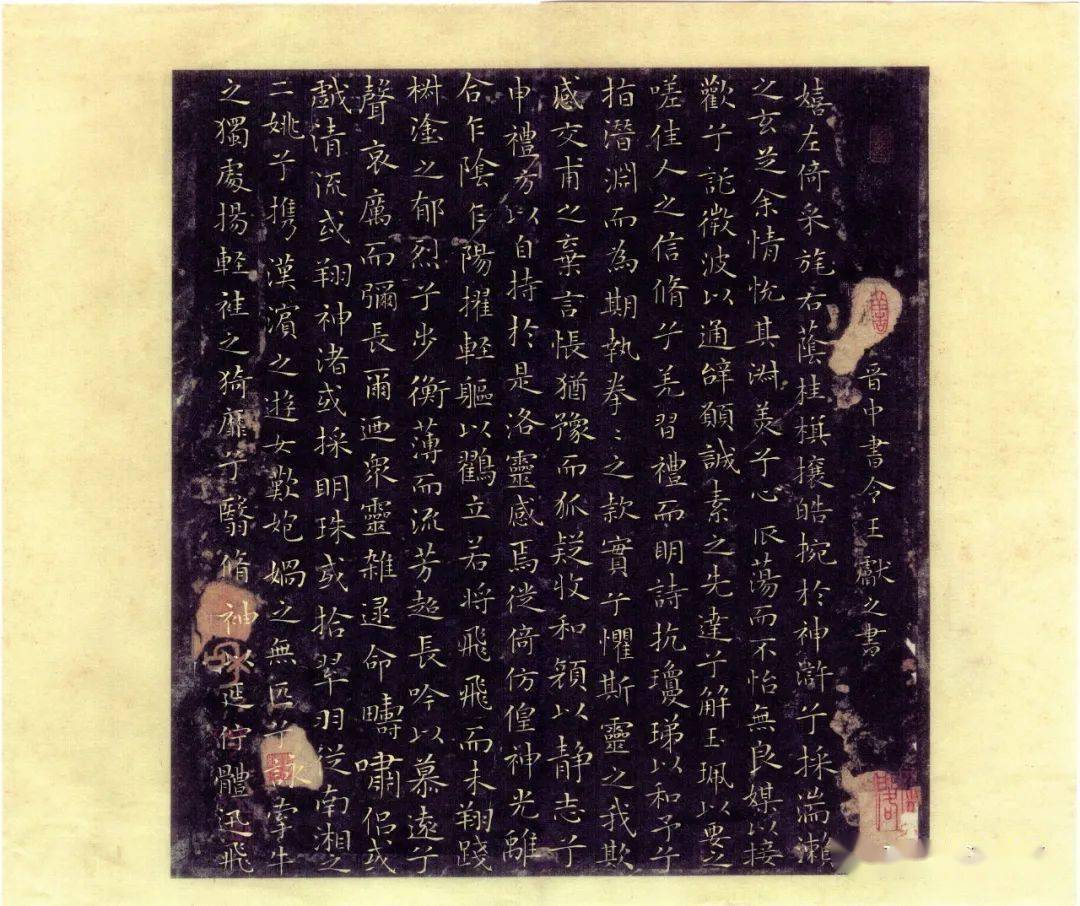 晉中書令王獻之書
嬉左倚采旄右蔭桂棋攘皓捥於神滸兮採湍瀨
之玄芝余情恱其淑美兮心振蕩而不怡無良媒以接
歡兮託微波以通辝願誠素之先達兮解玉珮以要之
嗟佳人之信脩兮羌習禮而明詩抗瓊珶以和予兮
指潛淵而為期執拳〻之款實兮懼斯靈之我欺
感交甫之棄言悵猶豫而狐疑收和顏以静志兮
申禮方以自持於是洛靈感焉徙倚仿偟神光離
合乍陰乍陽擢輕軀以鸖立若将飛飛而未翔踐
椒塗之郁烈兮步衡薄而流芳超長吟以慕遠兮
聲哀厲而彌長爾迺衆靈雜遝命疇嘯侣或
戱清流或翔神渚或採明珠或拾翠羽從南湘之
二姚兮携漢濱之遊女歎匏媧之無匹兮詠牽牛
之獨處揚輕袿之猗靡兮翳脩袖以延佇體迅飛